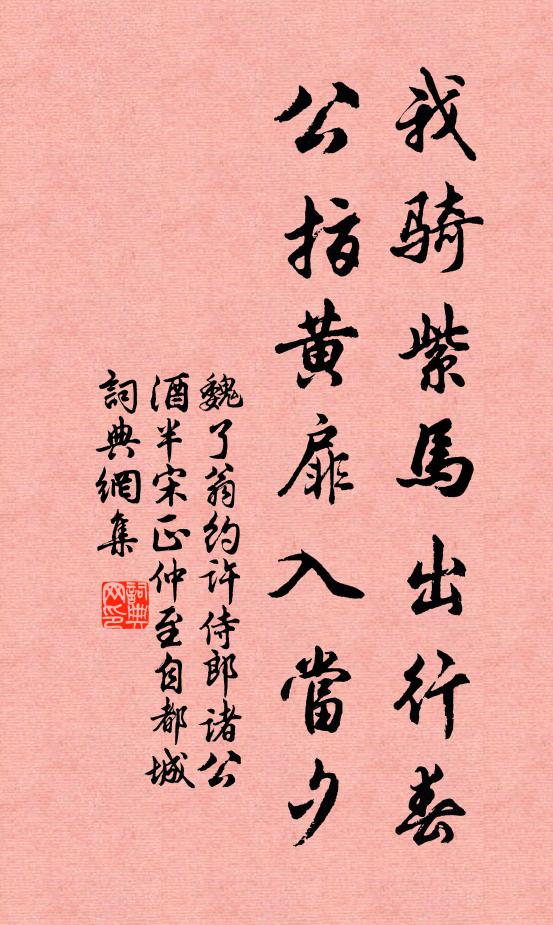 我騎紫馬出行春
公指黃扉入當夕
魏了翁約許侍郎諸公
酒半宋正仲至自都城
詞典網集
詞典
网印